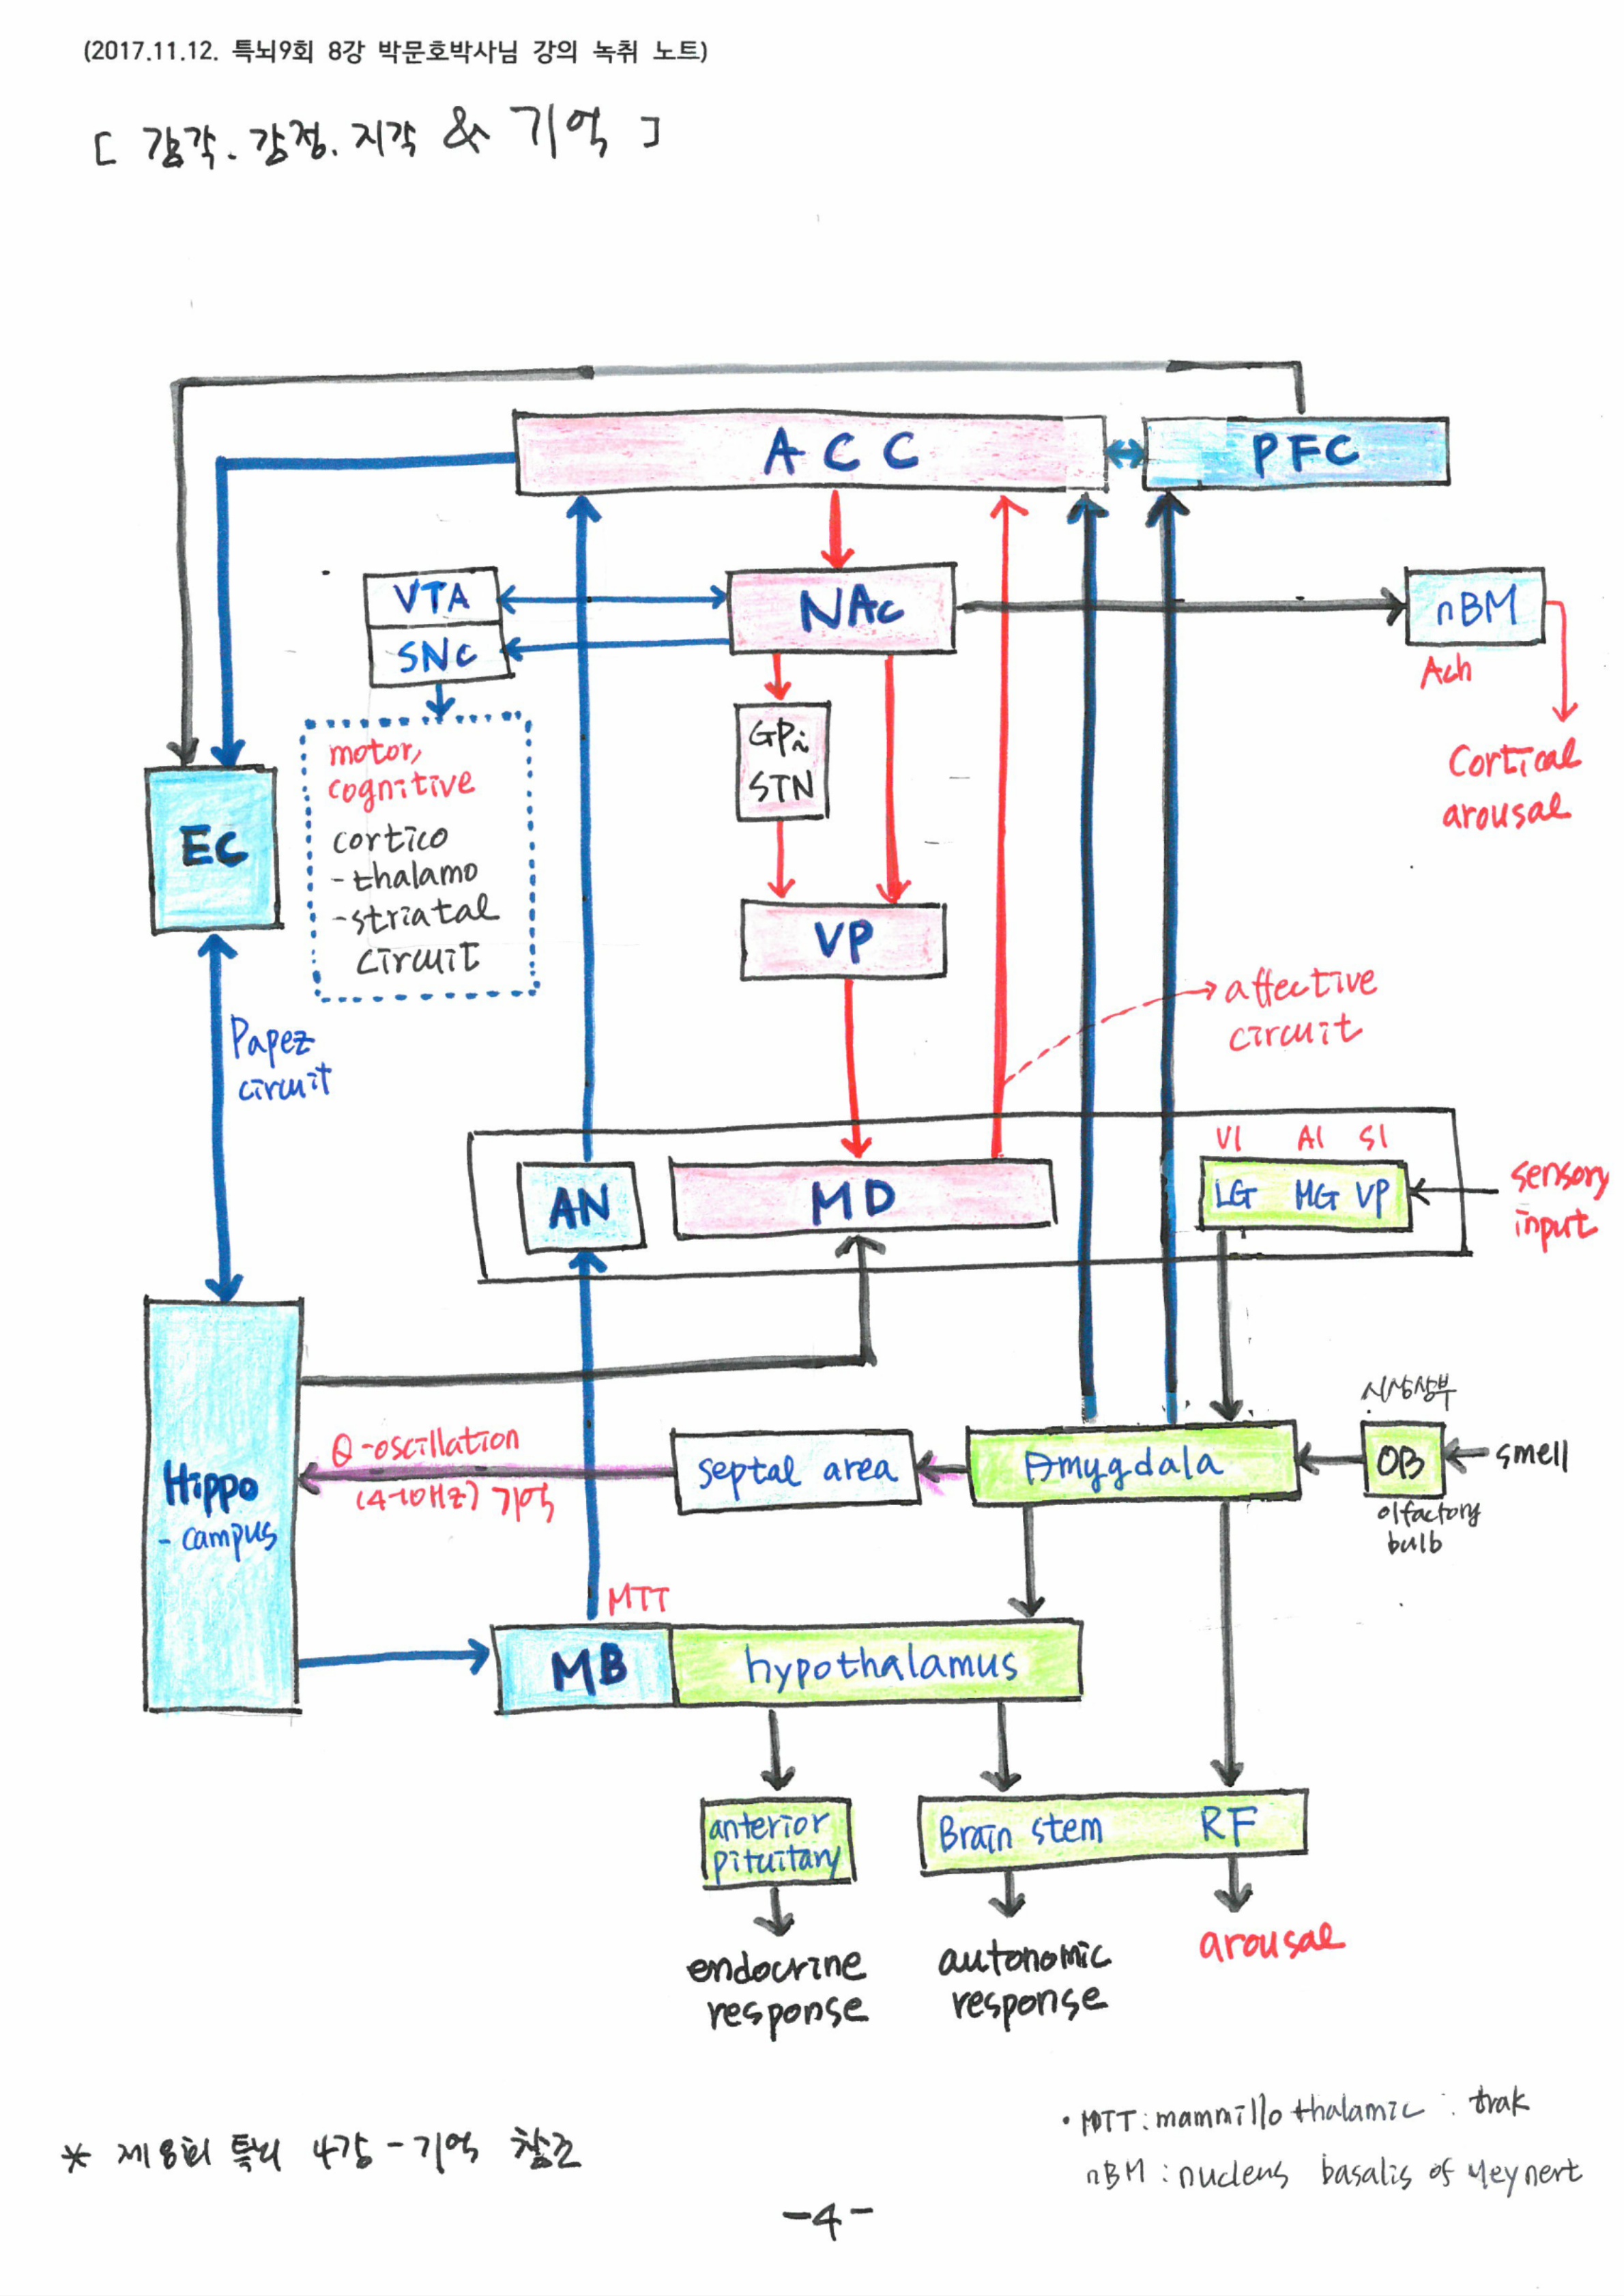 (2017.11.12. 특뇌9회 8강 박문호박사님 강의 녹취 노트)
[ 감각.감정.지각 & 기억 ]
ACC
PFC
VTA
NAc
nBM
SNc
Ach
GPi
STN
motor,
cognitive
cortico
-thalamo
-striatal
circuit
Cortical
arousal
EC
VP
affective
circuit
Papez
circuit
V1 A1 S1
AN
MD
LG MG VP
sensory
input
시상상부
θ-oscillation
(4-10Hz) 기억
septal area
Amygdala
OB
smell
olfactory
bulb
Hippo
-campus
MTT
MB
hypothalamus
anterior
pituitary
Brain stem RF
endocrine
response
autonomic
response
arousal
• MTT : mammillo thalamic : trak
nBM : nucleus basalis of Meynert
* 제8회 특뇌 4강 - 기억 참조
-4-